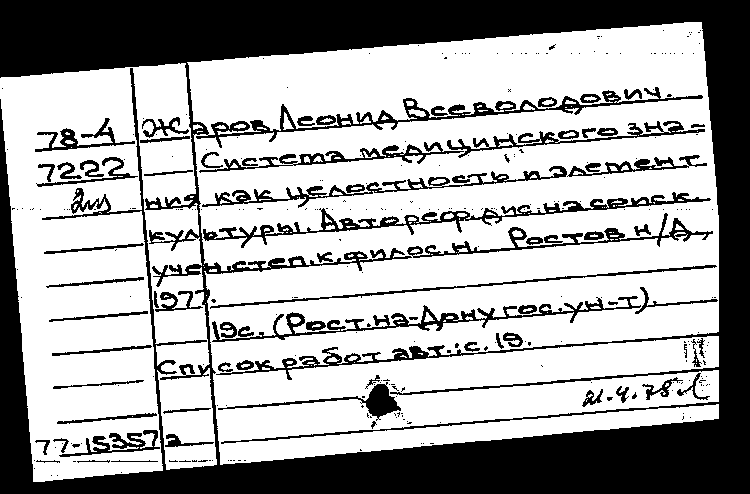 78-4 Жаров, Леонид Всеволодович.
7222 Система медицинского зна=
ния как целостность и элемент
культуры. Автореф. дис. на соиск.
учен. степ. к. филос. н. Ростов н/Д,
1977.
19с. (Рост. на-Дону гос. ун-т).
Список работ авт.: с. 19.
21.4.78
77-15357а